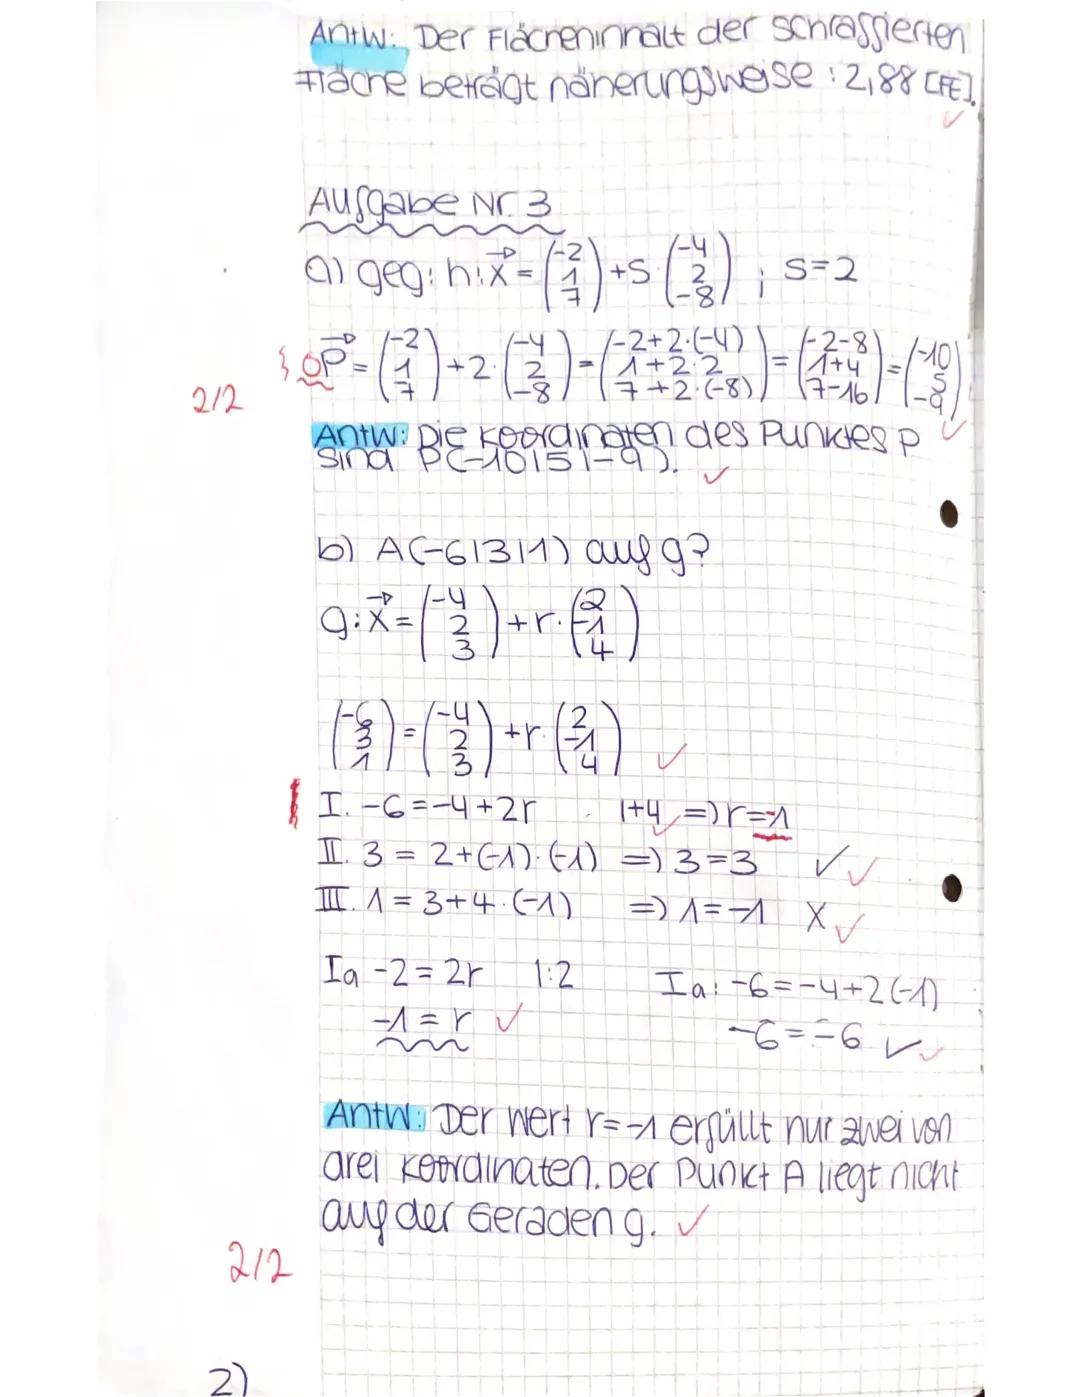 Antw: Der Flächeninhalt der schraffierten
Fläche beträgt näherungsweise : 2,88 [FE].
Aufgabe Nr. 3
a) geg: h: x = (-2 1 7) + s · (-4 2 -8) ; s = 2
OP = (-2 1 7) + 2 · (-4 2 -8) = (-2+2·(-4) 1+2·2 7+2·(-8)) = (-2-8 1+4 7-16) = (-10 5 -9)
2/2
Antw: Die Koordinaten des Punktes P
sind P(-10|5|-9).
b) A(-6|3|1) auf g?
g: x = (-4 2 3) + r · (2 -1 4)
(-6 3 1) = (-4 2 3) + r · (2 -1 4)
I. -6 = -4 + 2r |+4 => r = -1
II. 3 = 2 + (-1) · (-1) => 3 = 3 ✓
III. 1 = 3 + 4 · (-1) => 1 = -1 X
Ia -2 = 2r |:2 Ia: -6 = -4 + 2(-1)
-1 = r -6 = -6 ✓
Antw: Der Wert r = -1 erfüllt nur zwei von
drei Koordinaten. Der Punkt A liegt nicht
auf der Geraden g.
2/2
2)